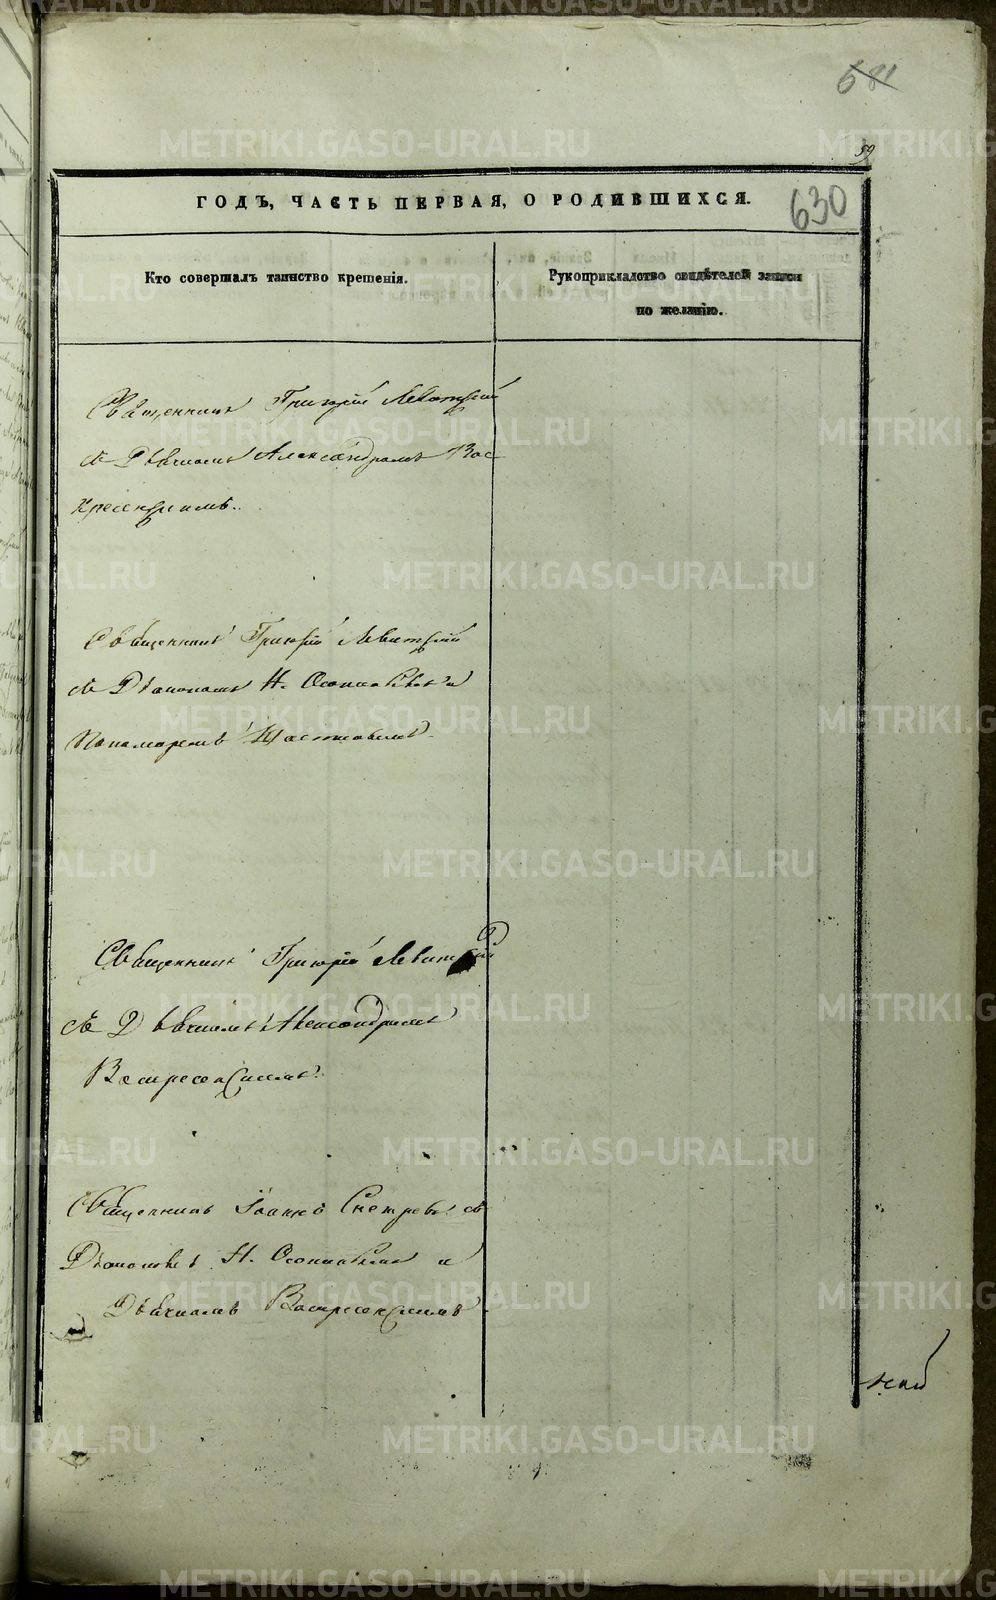 681
59
ГОДЪ, ЧАСТЬ ПЕРВАЯ, О РОДИВШИХСЯ.
630
Кто совершалъ таинство крещенія.
Рукоприкладство свидѣтелей записи
по желанію.
Священникъ Григорій Левитскій
съ Дьячкомъ Александромъ Вос
кресенскимъ.
Священникъ Григорій Левитскій
съ Діакономъ Н. и
Пономаремъ
Священникъ Григорій Левитскій
съ Дьячкомъ Александромъ
Воскресенскимъ.
Священникъ Іоаннъ съ
Діакономъ Н. и
Дьячкомъ Воскресенскимъ
METRIKI.GASO-URAL.RU